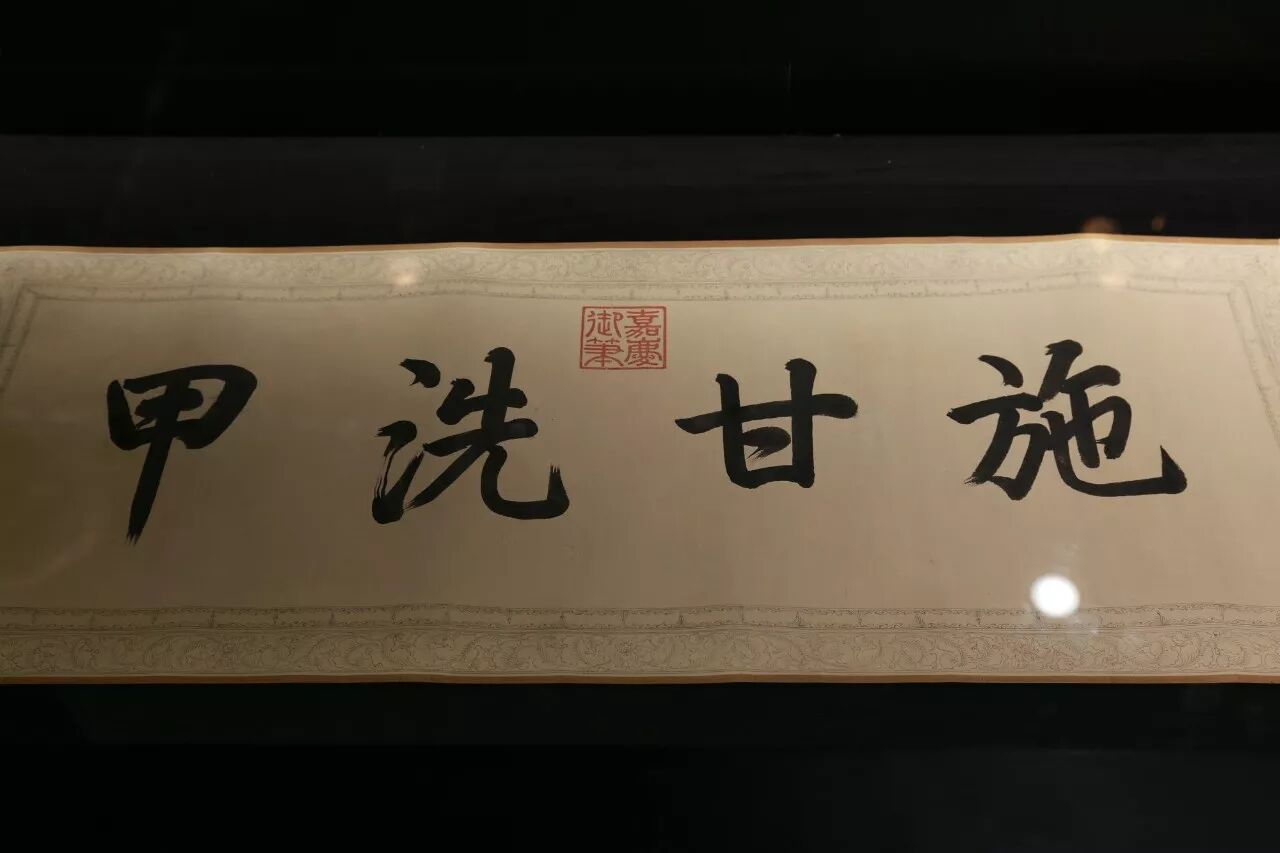 施甘洗甲
嘉慶
御筆